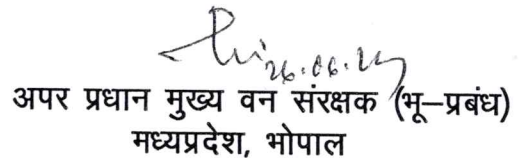 26.06.24
अपर प्रधान मुख्य वन संरक्षक (भू–प्रबंध)
मध्यप्रदेश, भोपाल